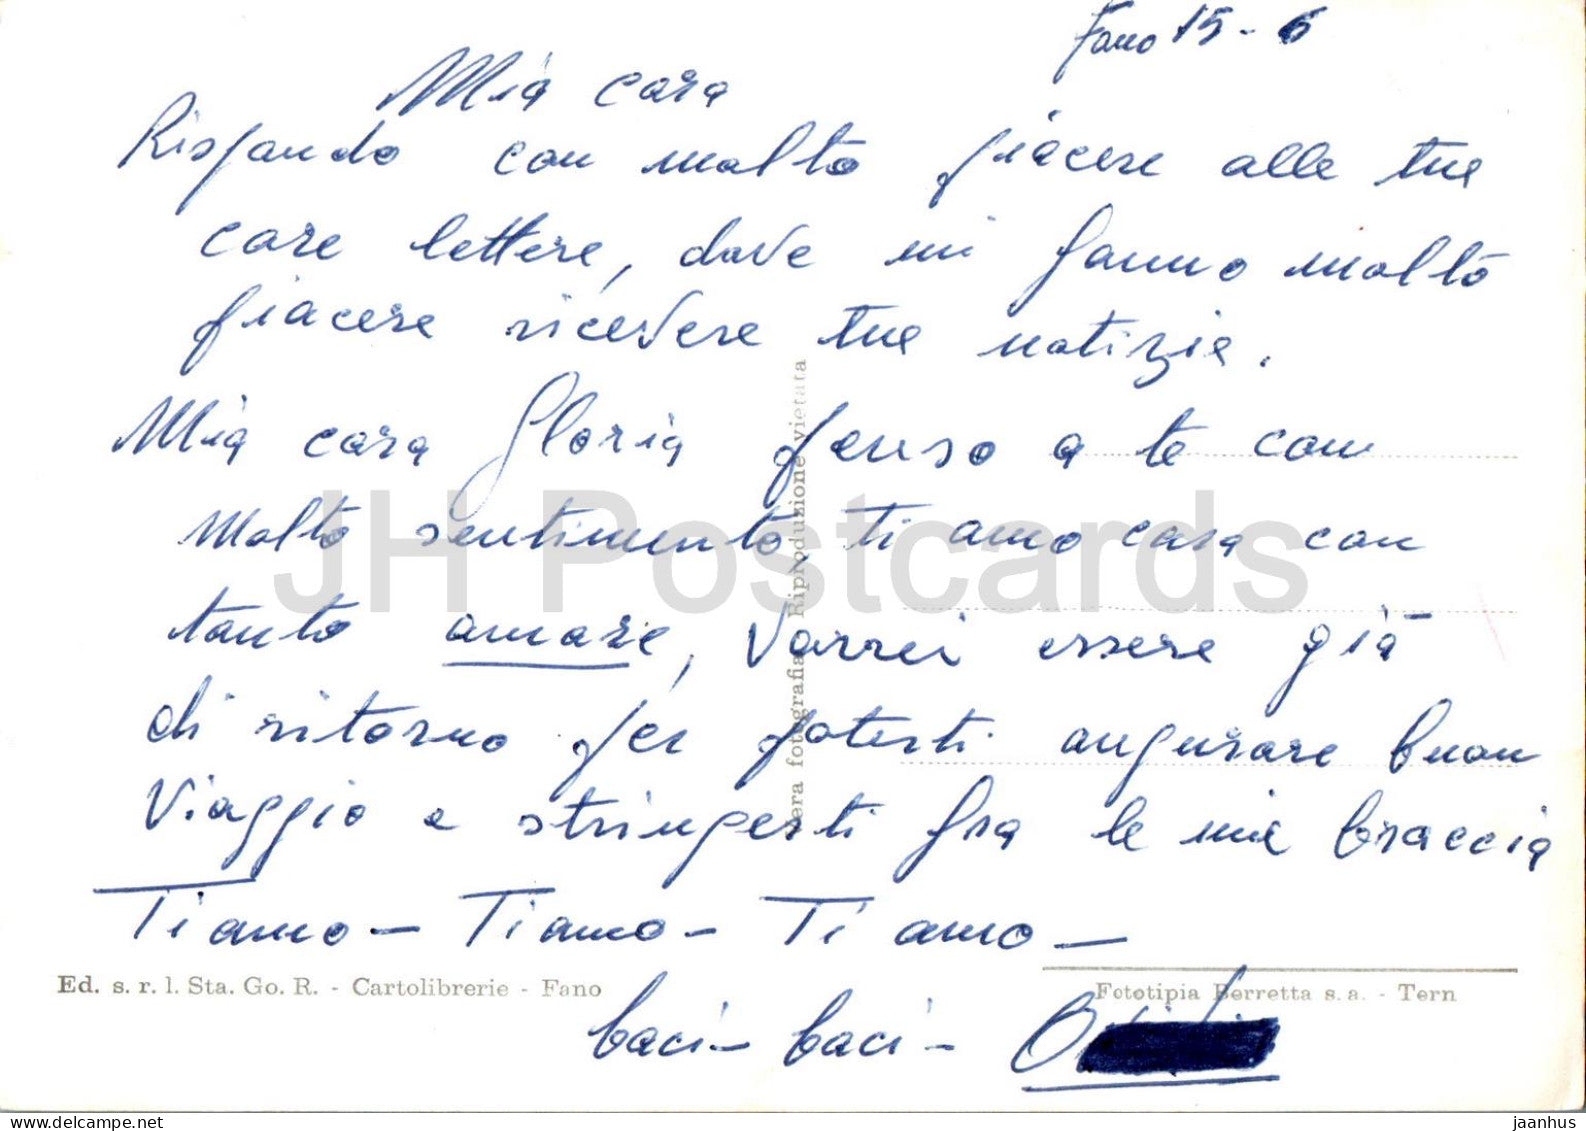 Fano 15-6
Mia cara
Rispondo con molto piacere alle tue
care lettere, dove mi fanno molto
piacere ricevere tue notizie.
Mia cara Gloria penso a te com
molto sentimento, ti amo cara con
tanto amore, vorrei essere già
di ritorno per poterti augurare buon
viaggio e stringerti fra le mie braccia
Ti amo - Ti amo - Ti amo -
Ed. s. r. l. Sta. Go. R. - Cartolibrerie - Fano
Fototipia Berretta s. a. - Tern
baci - baci -
Vera fotografia Riproduzione vietata
JH Postcards
jaanhus